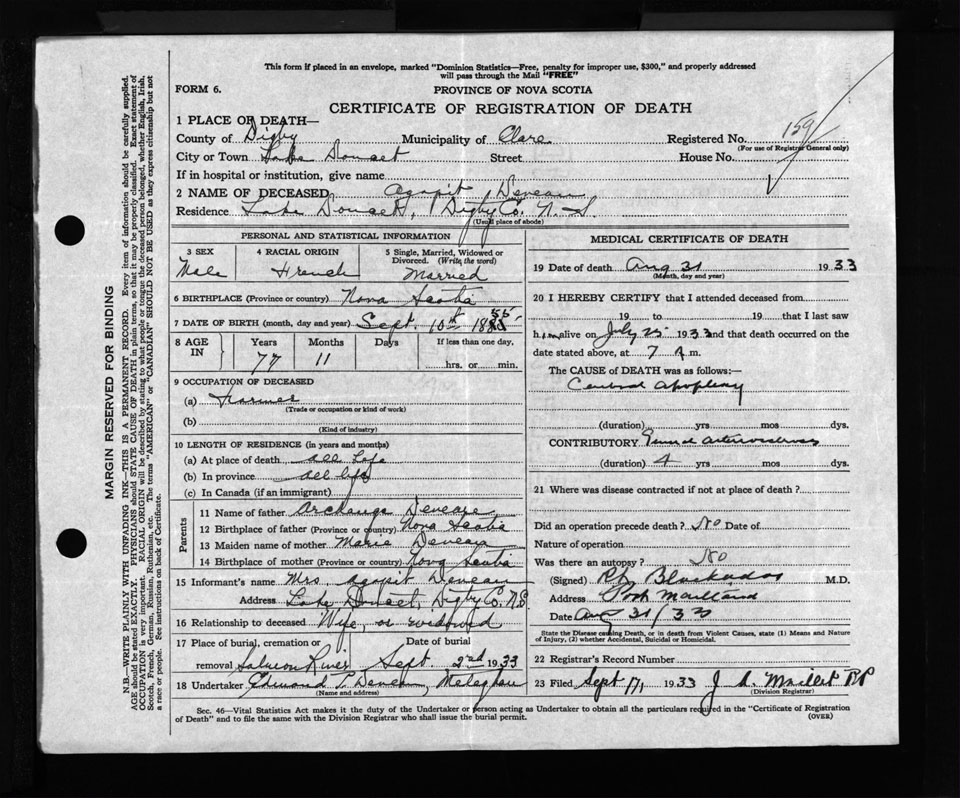 This form if placed in an envelope, marked "Dominion Statistics—Free, penalty for improper use, $300," and properly addressed
will pass through the Mail "FREE"
FORM 6.
PROVINCE OF NOVA SCOTIA
CERTIFICATE OF REGISTRATION OF DEATH
1 PLACE OF DEATH—
County of Digby Municipality of Clare Registered No. 159
(For use of Registrar General only)
City or Town Lake Doucet Street House No.
If in hospital or institution, give name
2 NAME OF DECEASED Agapit Deveau
Residence Lake Doucet, Digby Co. N. S.
(Usual place of abode)
PERSONAL AND STATISTICAL INFORMATION
3 SEX 4 RACIAL ORIGIN 5 Single, Married, Widowed or Divorced. (Write the word)
Male French Married
6 BIRTHPLACE (Province or country) Nova Scotia
7 DATE OF BIRTH (month, day and year) Sept. 10th 1855
8 AGE IN Years Months Days If less than one day,
77 11 hrs. or min.
9 OCCUPATION OF DECEASED
(a) Farmer
(Trade or occupation or kind of work)
(b)
(Kind of industry)
10 LENGTH OF RESIDENCE (in years and months)
(a) At place of death all Life
(b) In province all life
(c) In Canada (if an immigrant)
Parents
11 Name of father Archange Deveau
12 Birthplace of father (Province or country) Nova Scotia
13 Maiden name of mother Marie Deveau
14 Birthplace of mother (Province or country) Nova Scotia
15 Informant's name Mrs. Agapit Deveau
Address Lake Doucet, Digby Co. N.S
16 Relationship to deceased Wife, or widowed
17 Place of burial, cremation or Date of burial
removal Salmon River Sept 2nd 1933
18 Undertaker Edmond P. Deveau, Meteghan
(Name and address)
MEDICAL CERTIFICATE OF DEATH
19 Date of death Aug 31 1933
(Month, day and year)
20 I HEREBY CERTIFY that I attended deceased from
19 to 19 that I last saw
him alive on July 25 1933 and that death occurred on
date stated above, at 7 A.m.
The CAUSE of DEATH was as follows:—
Cerebral apoplexy
(duration) yrs mos dys.
CONTRIBUTORY General arteriosclerosis
(duration) 4 yrs mos dys.
21 Where was disease contracted if not at place of death?
Did an operation precede death? No Date of
Nature of operation
Was there an autopsy? No
(Signed) Blackadar M.D.
Address Port Maitland
Date Aug 31/33
State the Disease causing Death, or in death from Violent Causes, state (1) Means and Nature
of Injury, (2) whether Accidental, Suicidal or Homicidal.
22 Registrar's Record Number
23 Filed Sept 17, 1933 J A Maillet P.P.
(Division Registrar)
Sec. 46—Vital Statistics Act makes it the duty of the Undertaker or person acting as Undertaker to obtain all the particulars required in the "Certificate of Registration
of Death" and to file the same with the Division Registrar who shall issue the burial permit.
(OVER)
MARGIN RESERVED FOR BINDING
N.B.—WRITE PLAINLY WITH UNFADING INK—THIS IS A PERMANENT RECORD. Every item of information should be carefully supplied.
AGE should be stated EXACTLY. PHYSICIANS should STATE CAUSE OF DEATH in plain terms, so that it may be properly classified. Exact statement of
OCCUPATION is very important. RACIAL ORIGIN will be described by stating to what people or tongue the deceased person belonged, whether English, Irish,
Scotch, French, German, Russian, Ruthenian, etc. The terms "AMERICAN" or "CANADIAN" SHOULD NOT BE USED as they express citizenship but not
a race or people. See instructions on back of Certificate.